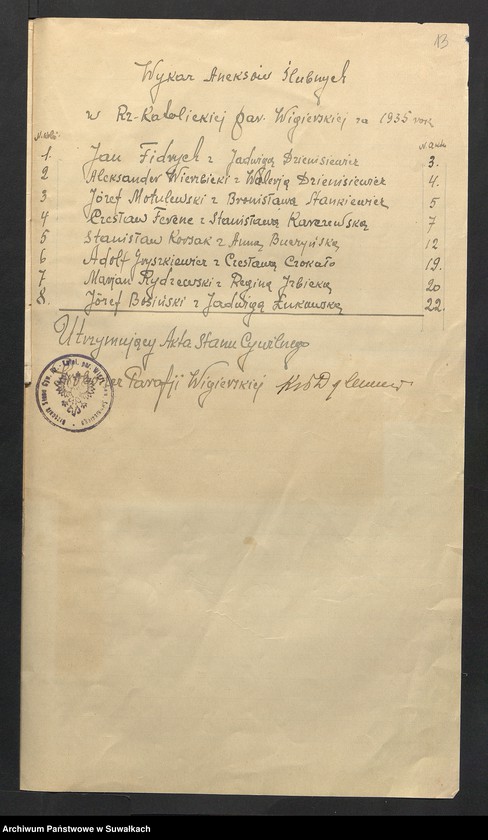 13
Wykaz Aneksów Ślubnych
w Rz-Katolickiej par. Wigierskiej za 1935 rok
N. kol. N. aktu
1. Jan Fidrych z Jadwigą Dzienisiewicz 3.
2 Aleksander Wierzbicki z Walerją Dzienisiewicz 4.
3 Józef Motulewski z Bronisławą Stankiewicz 5
4 Czesław Ferenc z Stanisławą Karczewską 7
5 Stanisław Korsak z Anną Buczyńską 12
6 Adolf Gryszkiewicz z Czesławą Czokało 19.
7 Marjan Rydzewski z Reginą Izbicką 20
8. Józef Bosiński z Jadwigą Łukowską 22.
Utrzymujący Akta Stanu Cywilnego
Parafji Wigierskiej
Archiwum Państwowe w Suwałkach